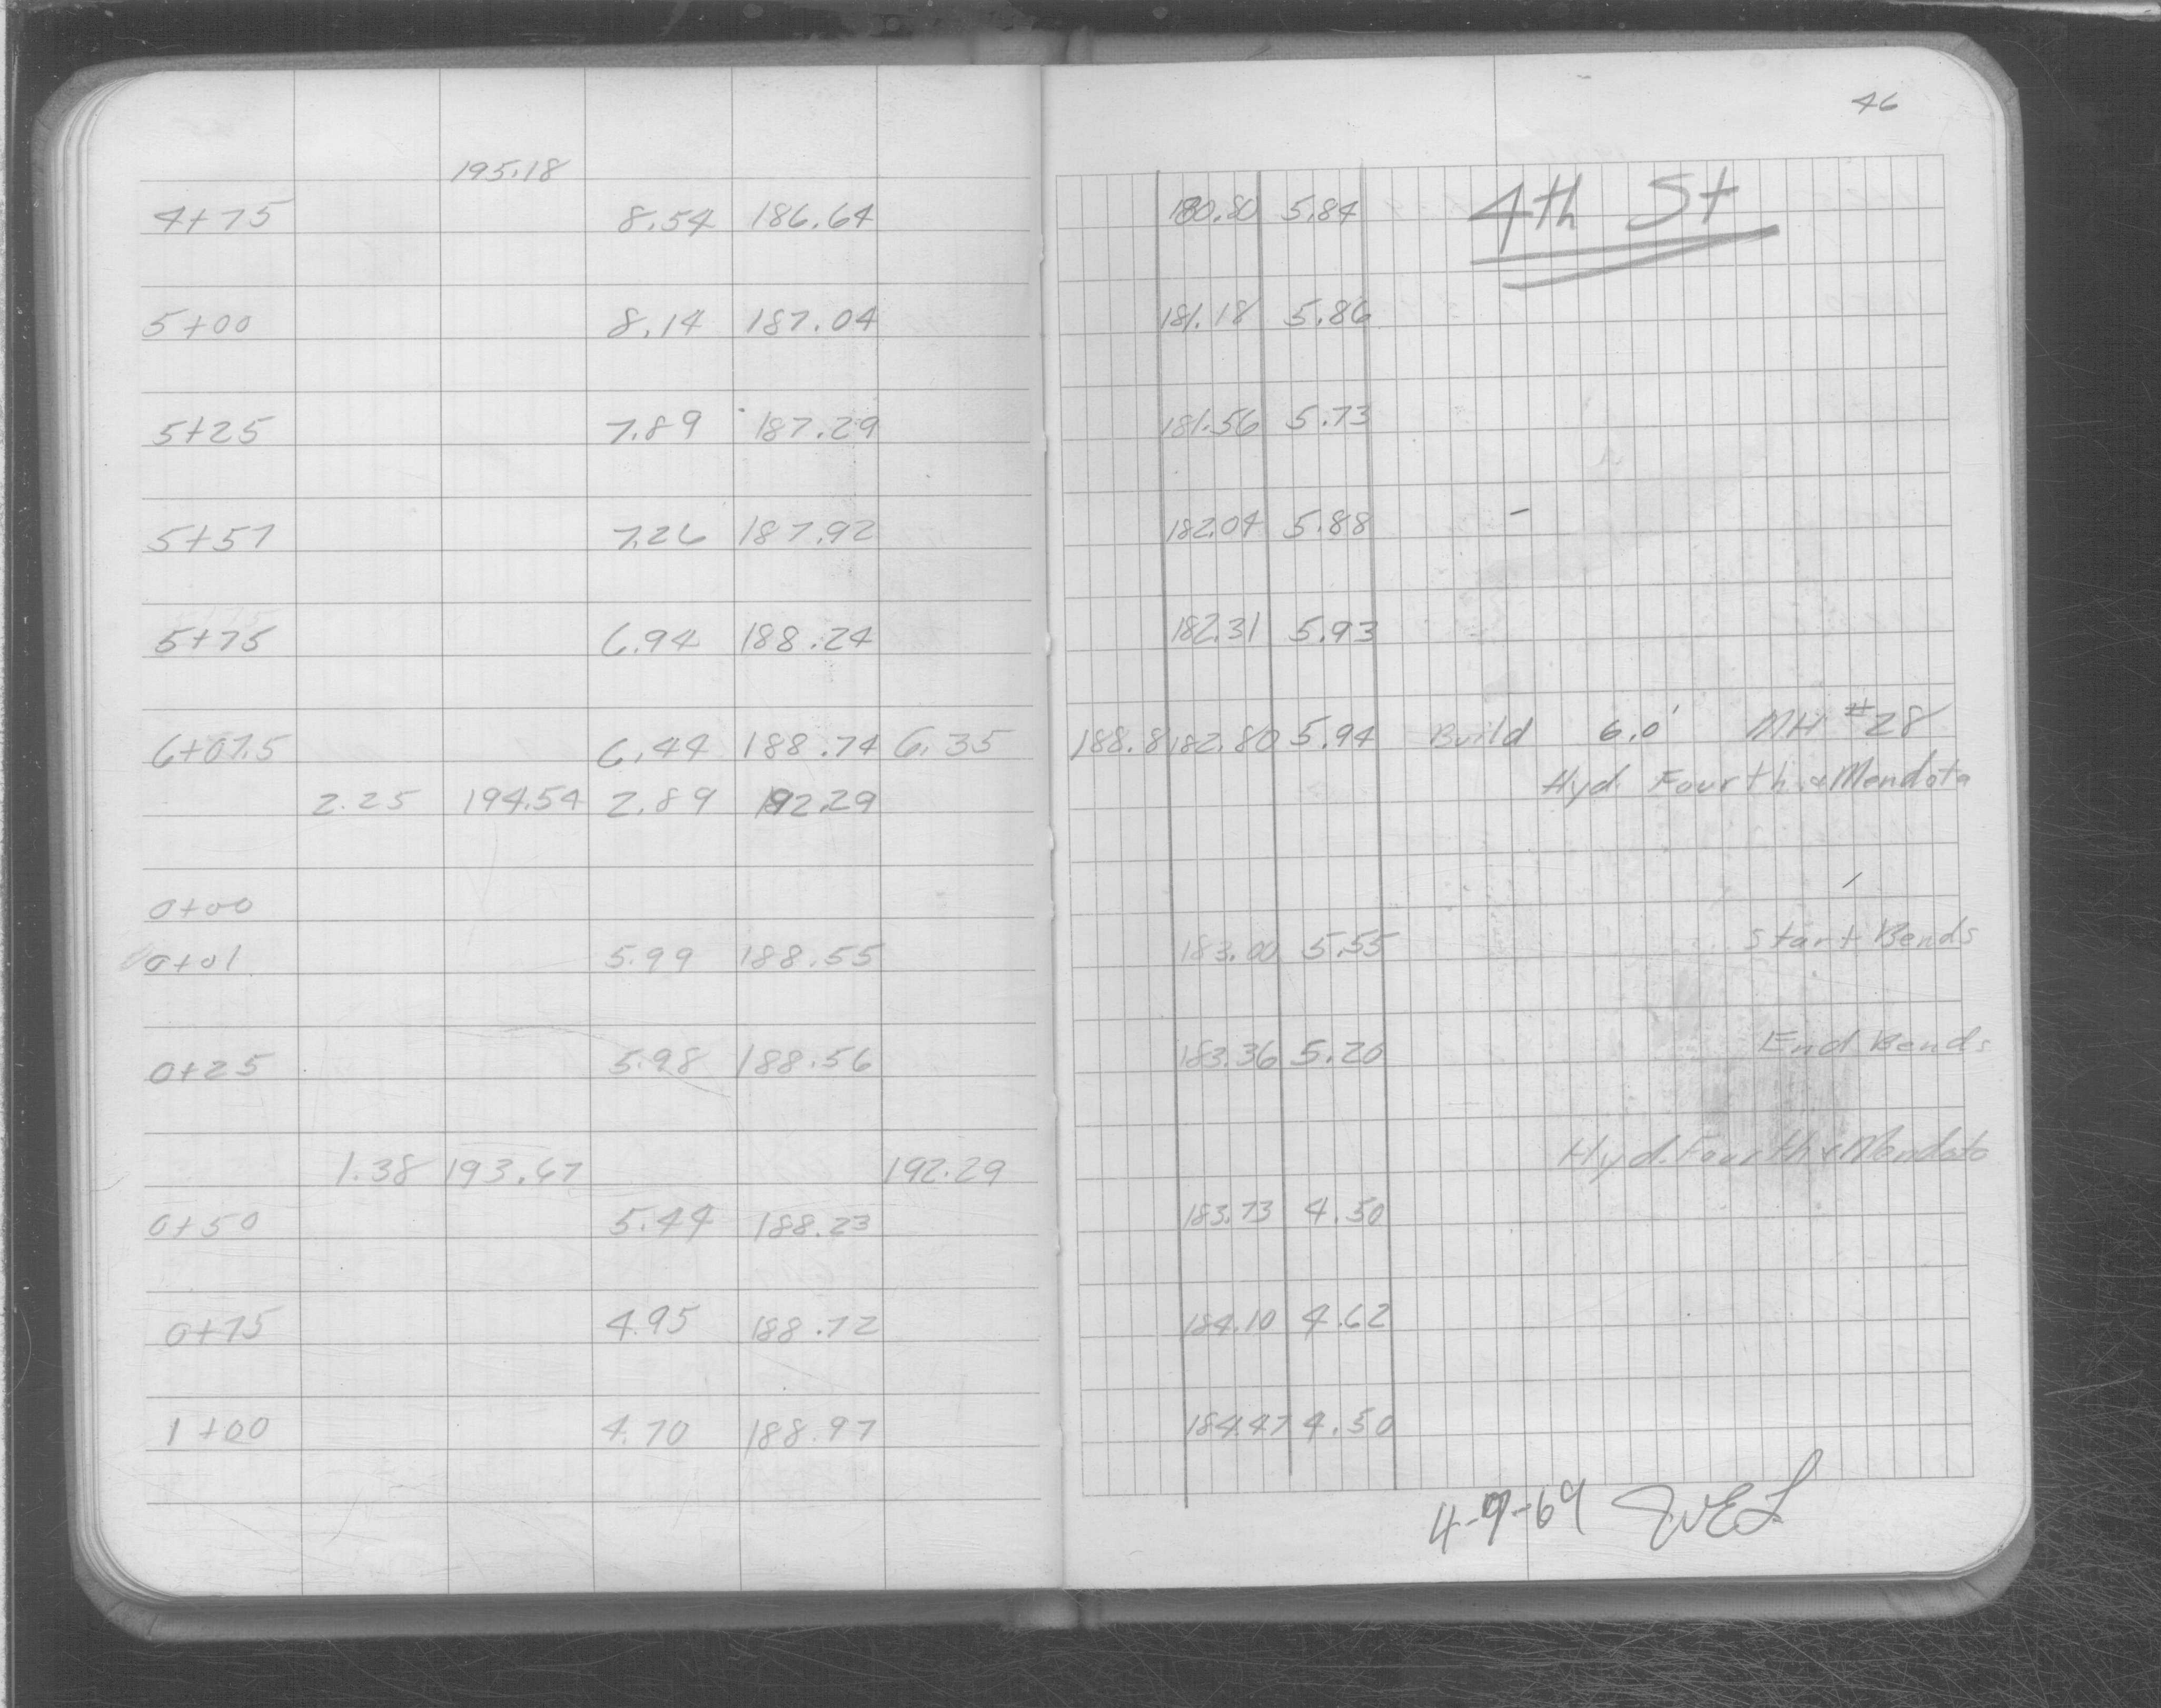 46
195.18
4+75 8.54 186.64 180.80 5.84 4th St
5+00 8.14 187.04 181.18 5.86
5+25 7.89 187.29 181.56 5.73
5+57 7.26 187.92 182.04 5.88 -
5+75 6.94 188.24 182.31 5.93
6+07.5 6.44 188.74 6.35 188.8 182.80 5.94 Build 6.0' MH #28
2.25 194.54 2.89 192.29 Hyd. Fourth & Mendota
0+00
0+01 5.99 188.55 183.00 5.55 Start Bends
0+25 5.98 188.56 183.36 5.20 End Bends
1.38 193.67 192.29 Hyd. Fourth & Mendota
0+50 5.44 188.23 183.73 4.50
0+75 4.95 188.72 184.10 4.62
1+00 4.70 188.97 184.47 4.50
4-9-69 WEL